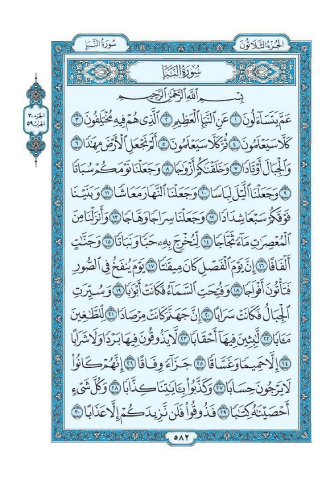 سُورَةُ النَّبَإِ
الجُزْءُ الثَّلَاثُونَ
سُورَةُ النَّبَإِ
بِسْمِ اللَّهِ الرَّحْمَٰنِ الرَّحِيمِ
عَمَّ يَتَسَآءَلُونَ ١ عَنِ النَّبَإِ الْعَظِيمِ ٢ الَّذِي هُمْ فِيهِ مُخْتَلِفُونَ ٣
كَلَّا سَيَعْلَمُونَ ٤ ثُمَّ كَلَّا سَيَعْلَمُونَ ٥ أَلَمْ نَجْعَلِ الْأَرْضَ مِهَٰدًا ٦
وَالْجِبَالَ أَوْتَادًا ٧ وَخَلَقْنَٰكُمْ أَزْوَٰجًا ٨ وَجَعَلْنَا نَوْمَكُمْ سُبَاتًا
٩ وَجَعَلْنَا الَّيْلَ لِبَاسًا ١٠ وَجَعَلْنَا النَّهَارَ مَعَاشًا ١١ وَبَنَيْنَا
فَوْقَكُمْ سَبْعًا شِدَادًا ١٢ وَجَعَلْنَا سِرَاجًا وَهَّاجًا ١٣ وَأَنزَلْنَا مِنَ
الْمُعْصِرَٰتِ مَآءً ثَجَّاجًا ١٤ لِّنُخْرِجَ بِهِۦ حَبًّا وَنَبَاتًا ١٥ وَجَنَّٰتٍ
أَلْفَافًا ١٦ إِنَّ يَوْمَ الْفَصْلِ كَانَ مِيقَٰتًا ١٧ يَوْمَ يُنفَخُ فِي الصُّورِ
فَتَأْتُونَ أَفْوَاجًا ١٨ وَفُتِحَتِ السَّمَآءُ فَكَانَتْ أَبْوَٰبًا ١٩ وَسُيِّرَتِ
الْجِبَالُ فَكَانَتْ سَرَابًا ٢٠ إِنَّ جَهَنَّمَ كَانَتْ مِرْصَادًا ٢١ لِّلطَّٰغِينَ
مَـَٔابًا ٢٢ لَّٰبِثِينَ فِيهَآ أَحْقَابًا ٢٣ لَّا يَذُوقُونَ فِيهَا بَرْدًا وَلَا شَرَابًا
٢٤ إِلَّا حَمِيمًا وَغَسَّاقًا ٢٥ جَزَآءً وِفَاقًا ٢٦ إِنَّهُمْ كَانُوا۟
لَا يَرْجُونَ حِسَابًا ٢٧ وَكَذَّبُوا۟ بِـَٔايَٰتِنَا كِذَّابًا ٢٨ وَكُلَّ شَيْءٍ
أَحْصَيْنَٰهُ كِتَٰبًا ٢٩ فَذُوقُوا۟ فَلَن نَّزِيدَكُمْ إِلَّا عَذَابًا ٣٠
٥٨٢